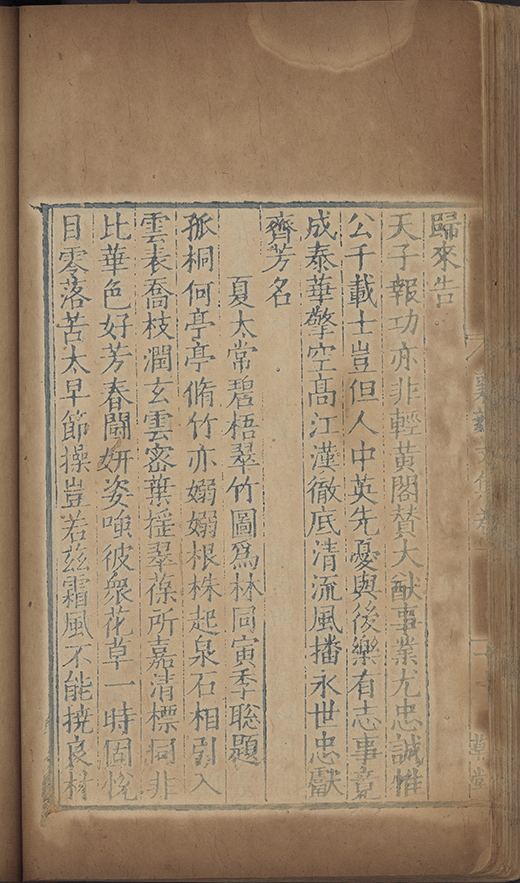 歸來告
天子報功亦非輕黃閣贊大猷事業尤忠誠惟
公千載士豈但人中英先憂與後樂有志事竟
成泰華擎空髙江漢徹底清流風播永世忠獻
齊芳名
夏太常碧梧翠竹圖爲林同寅季聡題
孤桐何亭亭脩竹亦嫋嫋根株起泉石相引入
雲表喬枝潤玄雲宻葉揺翠葆所嘉清標同非
比華色好芳春閙妍姿嗤彼衆花草一時固悅
目零落苦太早節操豈若兹霜風不能撓良材